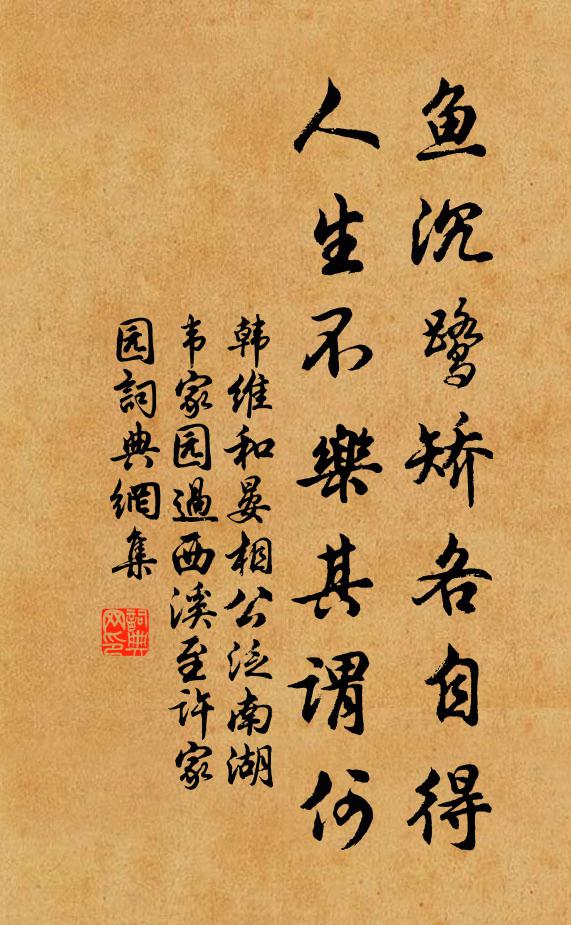 鱼沉鹭矫各自得
人生不樂其谓何
韩维和晏相公泛南湖
韦家园過西溪至许家
园詞典網集
詞典
网印